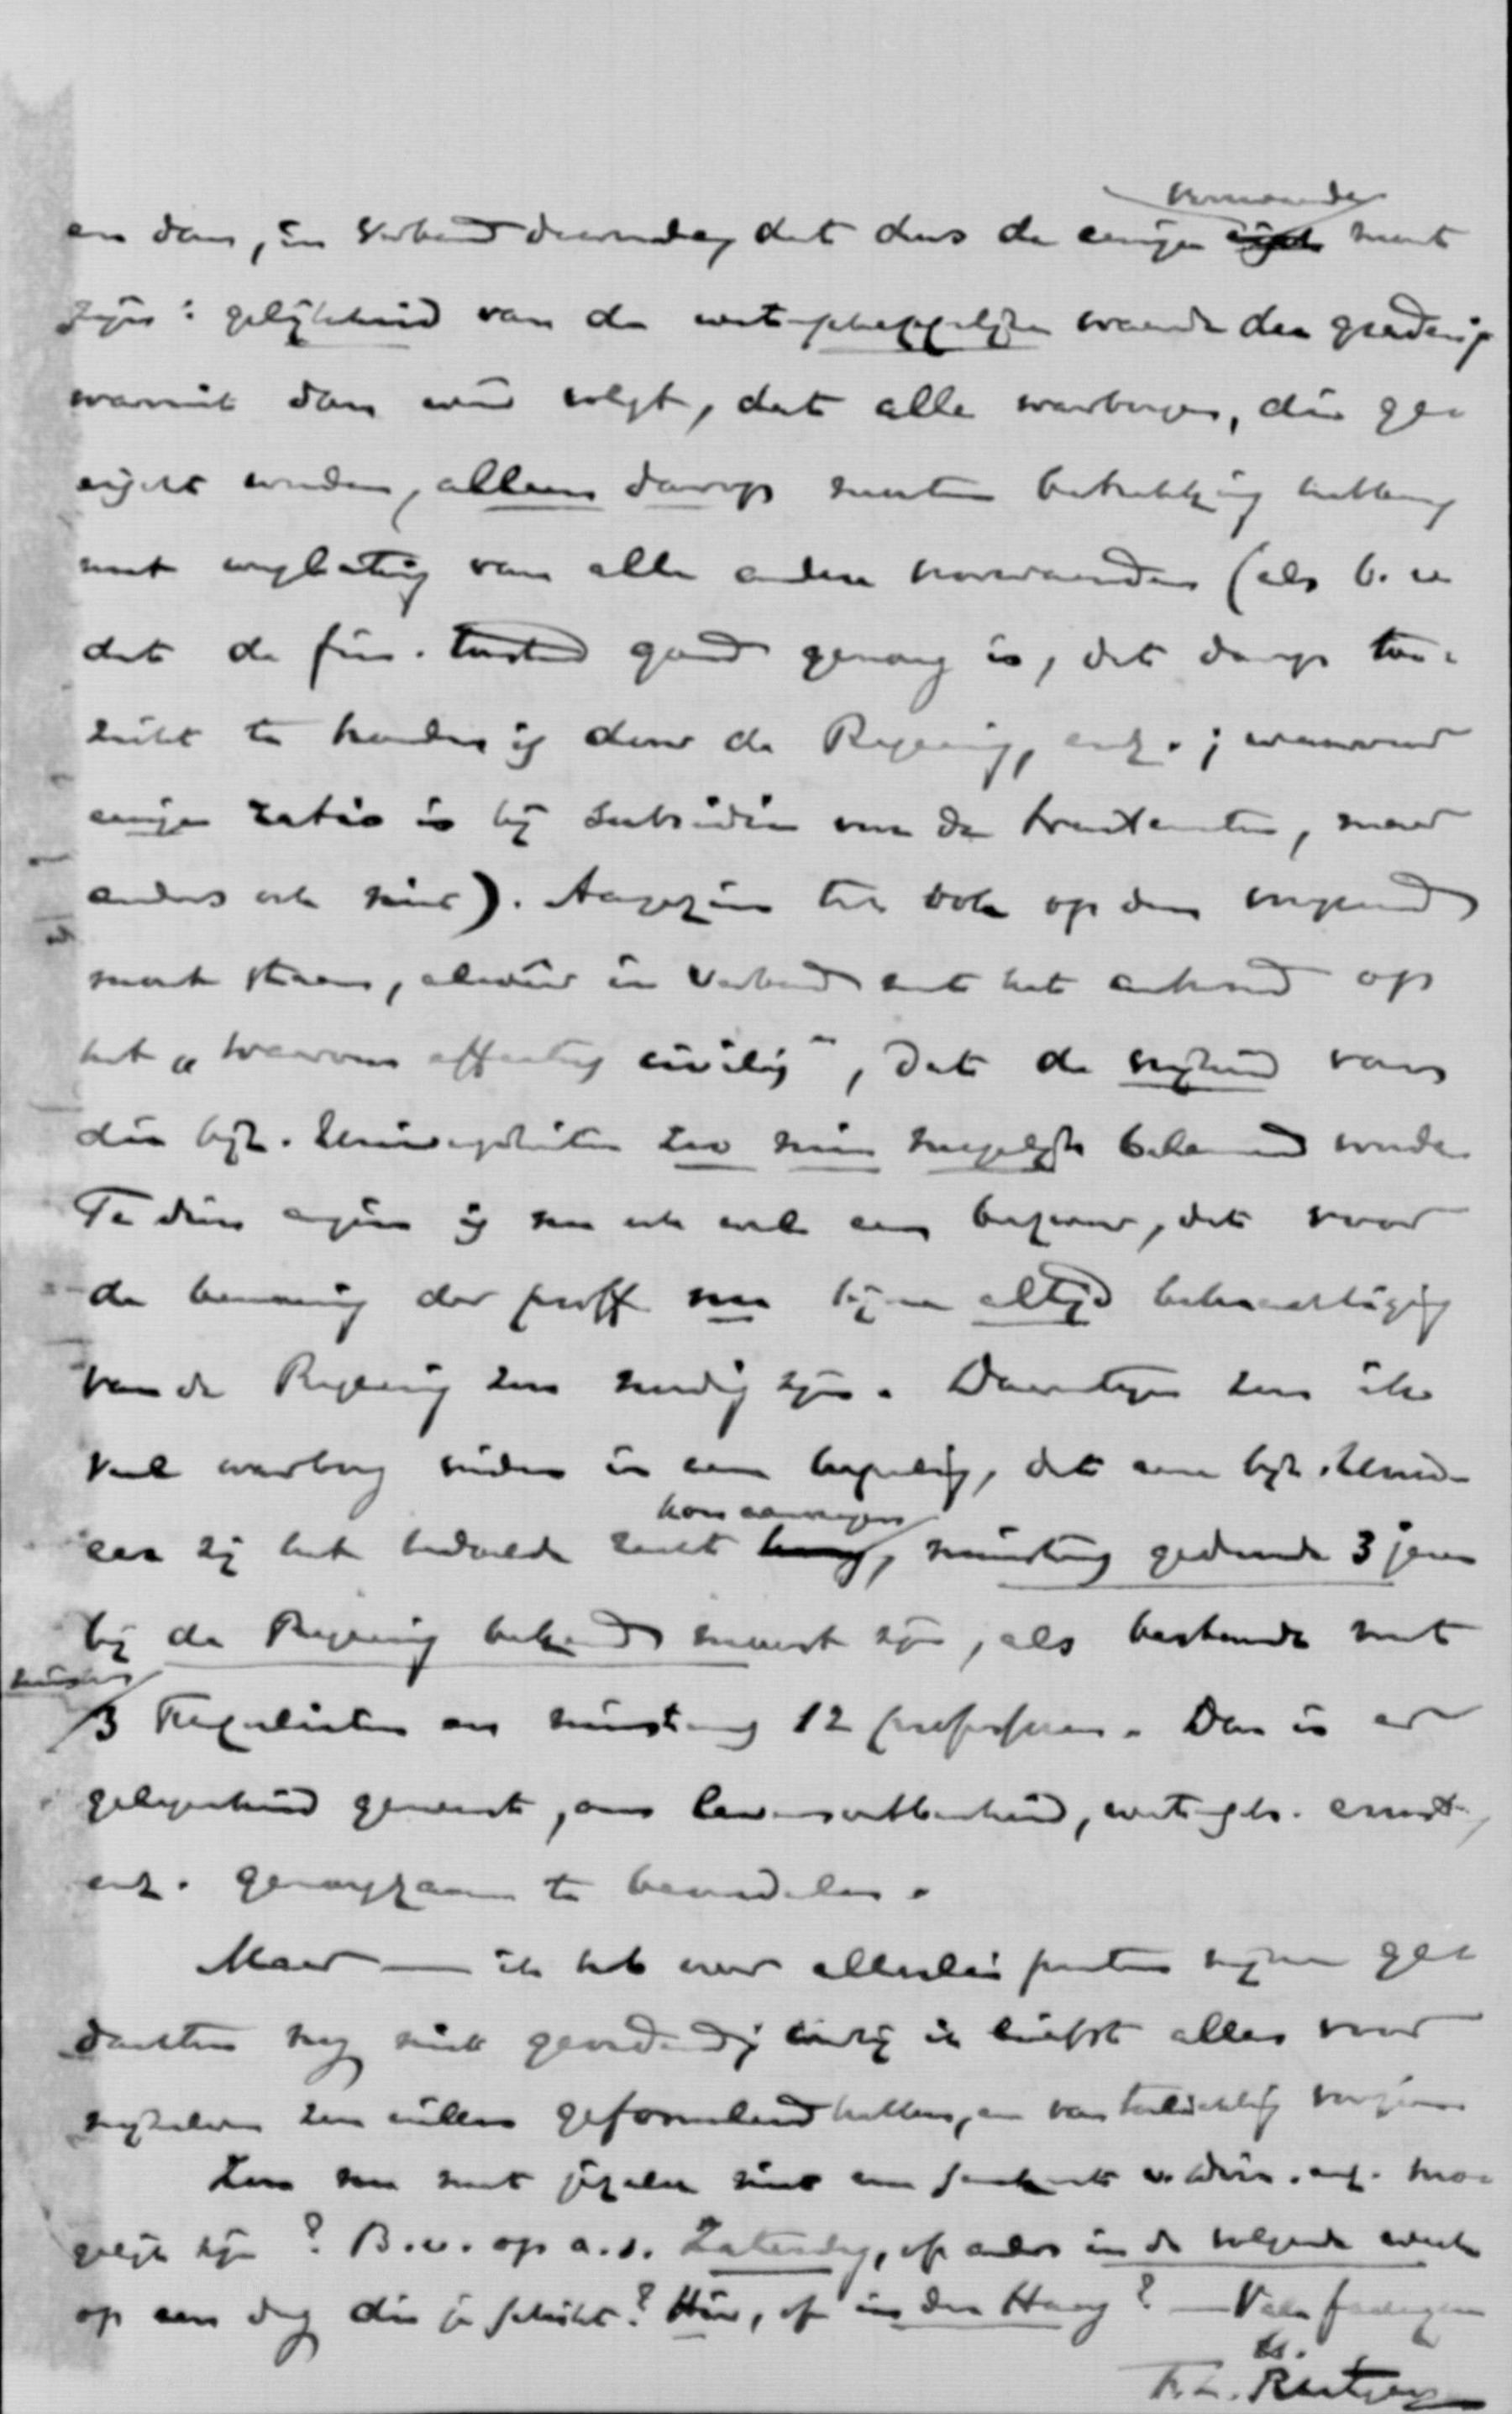 voorwaarde
en dan, in verband daarmede, dat dus de eenige moet
zijn: gelijkheid van de wetenschappelijke waarde der graden;
waaruit dan weer volgt, dat alle waarborgen, die ge-
eischt worden, alleen daarop moeten betrekking hebben,
met weglating van alle andere voorwaarden (als b.v.
dat de fin. toestand goed genoeg is, dat daarop toe-
zicht te houden is door de Regering, enz.; waarvoor
eenige ratio is bij subsidie van de tractementen, maar
anders ook niet). Aangezien ten volle op den voorgrond
moet staan, alweer in verband met het antwoord op
het „waarom effectus civilis", dat de vrijheid van
die bijz. Universiteiten zoo min mogelijk belemmerd worde.
Te dien aanzien is nu ook wel een bezwaar, dat voor
de benoeming der proff. nu bijna altijd bekrachtiging
van de Regering zou noodig zijn. Daartegen zou ik
veel waarborg vinden in een bepaling, dat eene bijz. Univ.
kon aanvragen
eer zij het bedoelde recht, minstens gedurende 3 jaren
bij de Regering bekend moest zijn, als bestaande met
minstens
3 Faculteiten en minstens 12 professoren. Dan is er
gelegenheid geweest, om levensvatbaarheid, wetensch. ernst,
enz. genoegzaam te beoordelen.
Maar — ik heb over allerlei punten mijne ge-
dachten nog niet geordend, terwijl ik liefst alles voor
mijzelven zou willen geformuleerd hebben, en van toelichting voorzien
Zou nu met jezelven niet een samenkomst v. eenige uren mo-
gelijk zijn? B.v. op a.s. Zaterdag, of anders in de volgende week
op een dag die je schikt? Hier, of in den Haag? — Vale faveque
tt.
F. L. Rutgers